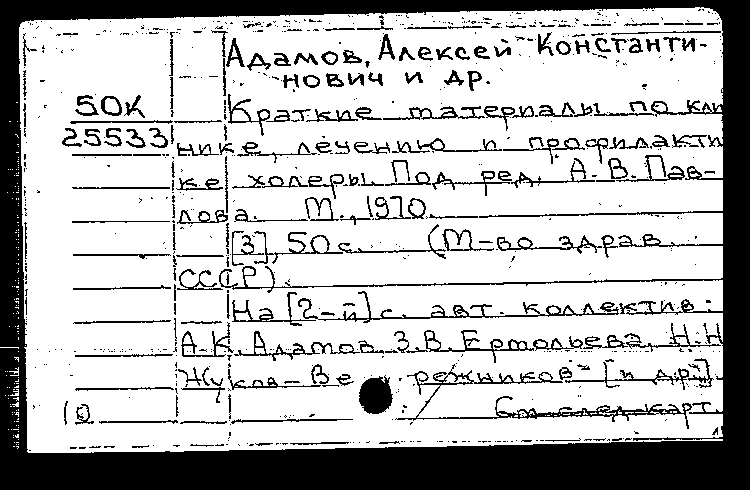 Адамов, Алексей Константи-
нович и др.
50К
25533
Краткие материалы по кли
нике, лечению и профилакти
ке холеры. Под ред. А. В. Пав-
лова. М., 1970.
[3], 50 с. (М-во здрав.
СССР).
На [2-й] с. авт. коллектив:
А.К. Адамов, З.В. Ермольева, Н.Н
Жуков-Ве режников [и др.].
См след карт.
10